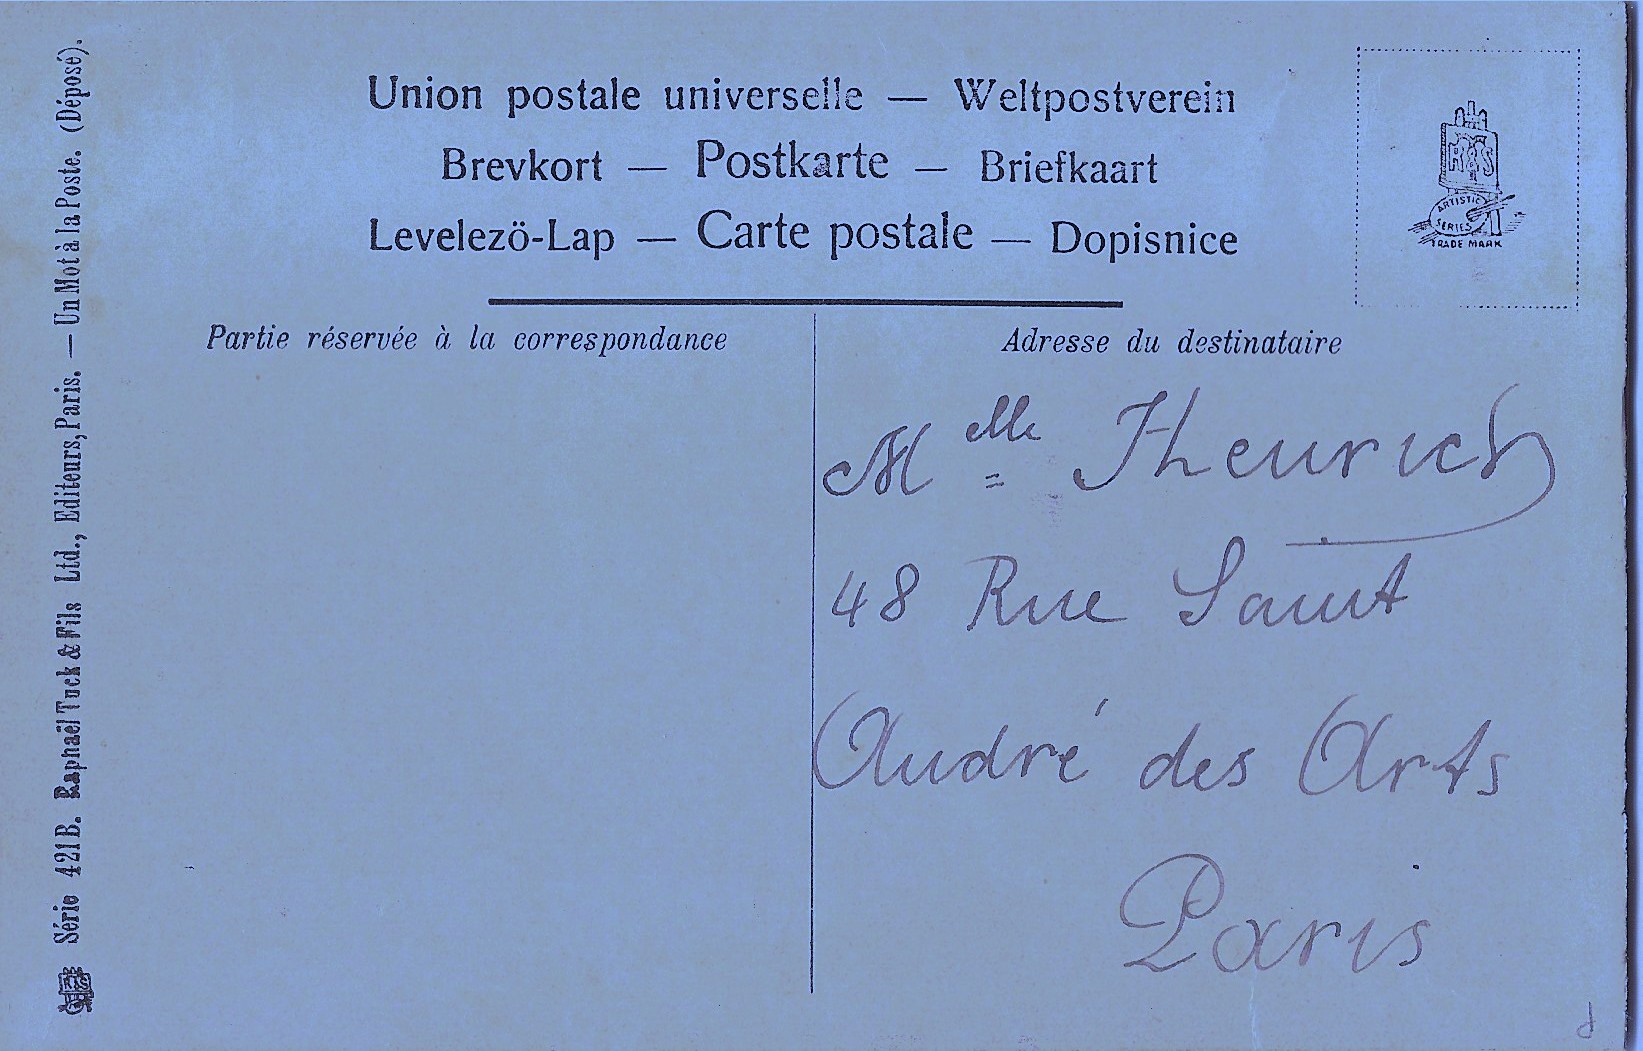 Union postale universelle — Weltpostverein
Brevkort — Postkarte — Briefkaart
Levelezö-Lap — Carte postale — Dopisnice
R&S
ARTISTIC
SERIES
TRADE MARK
Partie réservée à la correspondance
Adresse du destinataire
Melle Heurich
48 Rue Saint
André des Arts
Paris
Série 421 B. Raphaël Tuck & Fils Ltd., Editeurs, Paris. — Un Mot à la Poste. (Déposé).